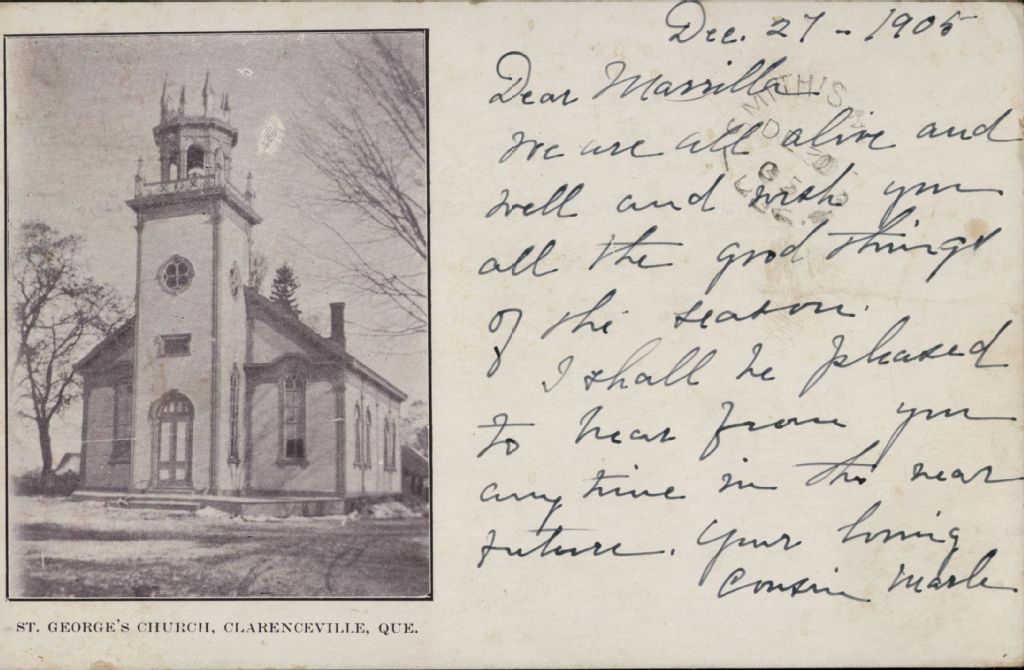 Dec. 27 - 1905
Dear Marrilla.
We are all alive and
well and wish you
all the good things
of the season.
I shall be pleased
to hear from you
any time in the near
future. Your loving
Cousin
ST. GEORGE'S CHURCH, CLARENCEVILLE, QUE.